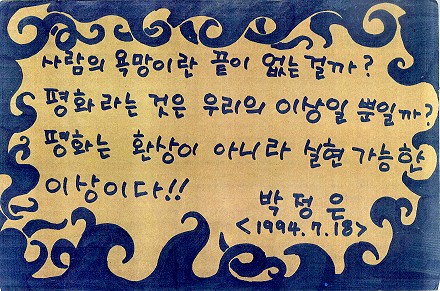 사람의 욕망이란 끝이 없는 걸까?
평화라는 것은 우리의 이상일 뿐일까?
평화는 환상이 아니라 실현가능한
이상이다!!
박정은
<1994.7.18>